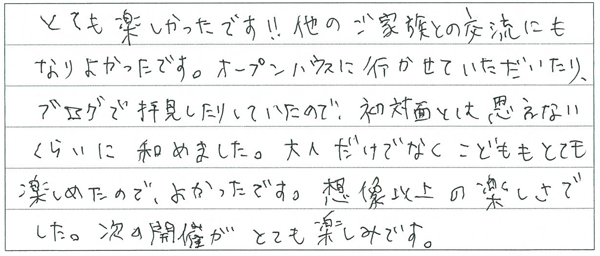 とても楽しかったです!! 他のご家族との交流にも
なりよかったです。オープンハウスに行かせていただいたり、
ブログで拝見したりしていたので、初対面とは思えない
くらいに和めました。大人だけでなくこどももとても
楽しめたので、よかったです。想像以上の楽しさで
した。次の開催がとても楽しみです。